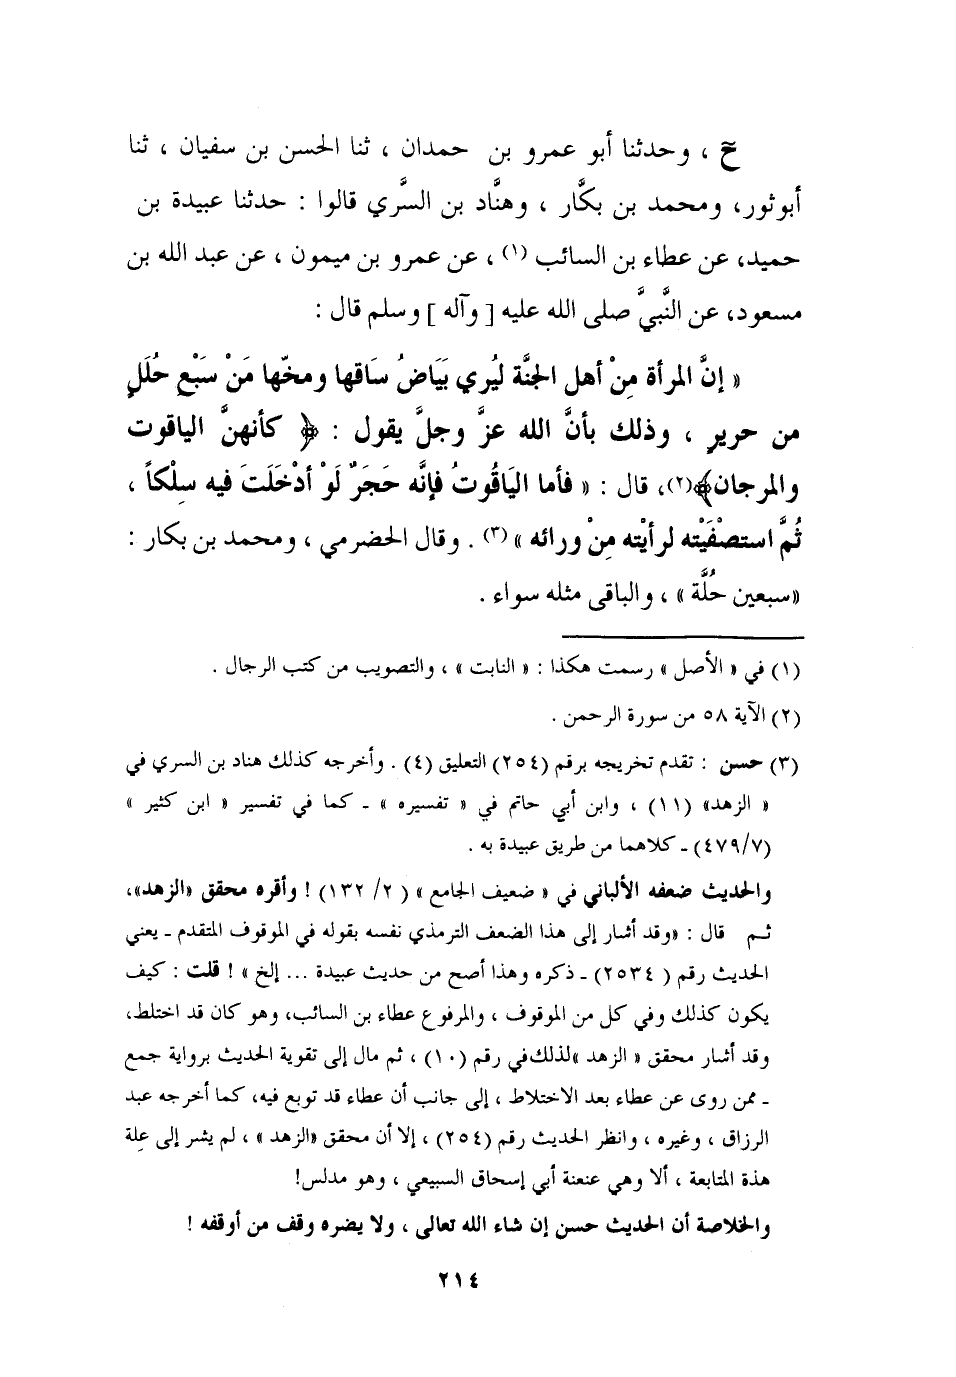 حَ ، وحدثنا أبو عمرو بن حمدان ، ثنا الحسن بن سفيان ، ثنا
أبوثور، ومحمد بن بكَّار ، وهنَّاد بن السَّري قالوا : حدثنا عبيدة بن
حميد، عن عطاء بن السائب (١) ، عن عمرو بن ميمون ، عن عبد الله بن
مسعود، عن النَّبيَّ صلى الله عليه [ وآله ] وسلم قال :
« إنَّ المرأة مِنْ أهل الجنَّة ليُري بَيَاضُ سَاقها ومخّها مَنْ سَبْعِ حُلَلٍ
من حريرٍ ، وذلك بأنَّ الله عزَّ وجلَّ يقول : ﴿ كأنهنَّ الياقوت
والمرجان﴾(٢)، قال : « فأما اليَاقُوتُ فإنَّه حَجَرٌ لَوْ أدْخَلَتَ فيه سِلْكاً ،
ثُمَّ استصْفَيْته لرأيْته مِنْ ورائه » (٣) . وقال الحضرمي ، ومحمد بن بكار :
«سبعين حُلَّة » ، والباقى مثله سواء .
(١) في « الأصل » رسمت هكذا : « النابت » ، والتصويب من كتب الرجال .
(٢) الآية ٥٨ من سورة الرحمن .
(٣) حسن : تقدم تخريجه برقم (٢٥٤) التعليق (٤) . وأخرجه كذلك هناد بن السري في
« الزهد» (١١) ، وابن أبي حاتم في « تفسيره » ـ كما في تفسير « ابن كثير »
(٤٧٩/٧) ـ كلاهما من طريق عبيدة به .
والحديث ضعفه الألباني في « ضعيف الجامع » ( ٢/ ١٣٢) ! وأقره محقق «الزهد»،
ثم قال : «وقد أشار إلى هذا الضعف الترمذي نفسه بقوله في الموقوف المتقدم ـ يعني
الحديث رقم ( ٢٥٣٤) ـ ذكره وهذا أصح من حديث عبيدة ... إلخ » ! قلت : كيف
يكون كذلك وفي كل من الموقوف ، والمرفوع عطاء بن السائب، وهو كان قد اختلط،
وقد أشار محقق « الزهد »لذلك في رقم (١٠) ، ثم مال إلى تقوية الحديث برواية جمع
ـ ممن روى عن عطاء بعد الاختلاط ، إلى جانب أن عطاء قد توبع فيه، كما أخرجه عبد
الرزاق ، وغيره ، وانظر الحديث رقم (٢٥٤) ، إلا أن محقق «الزهد» ، لم يشر إلى علة
هذة المتابعة ، ألا وهي عنعنة أبي إسحاق السبيعي ، وهو مدلس!
والخلاصة أن الحديث حسن إن شاء الله تعالى ، ولا يضره وقف من أوقفه !
٢١٤